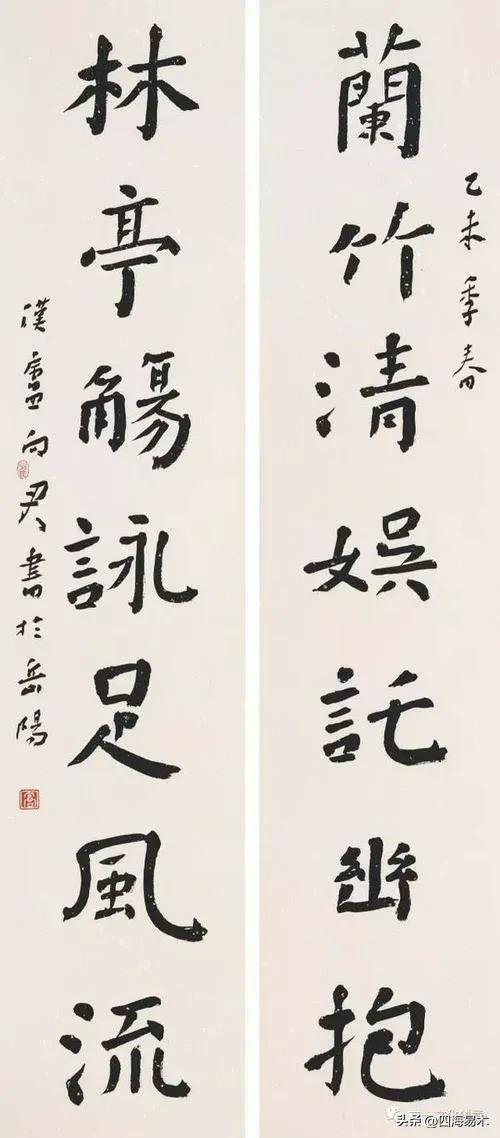 乙未季春
蘭竹清娛託幽抱
林亭觴詠足風流
漢盧向君書於岳陽
头条@四海易术